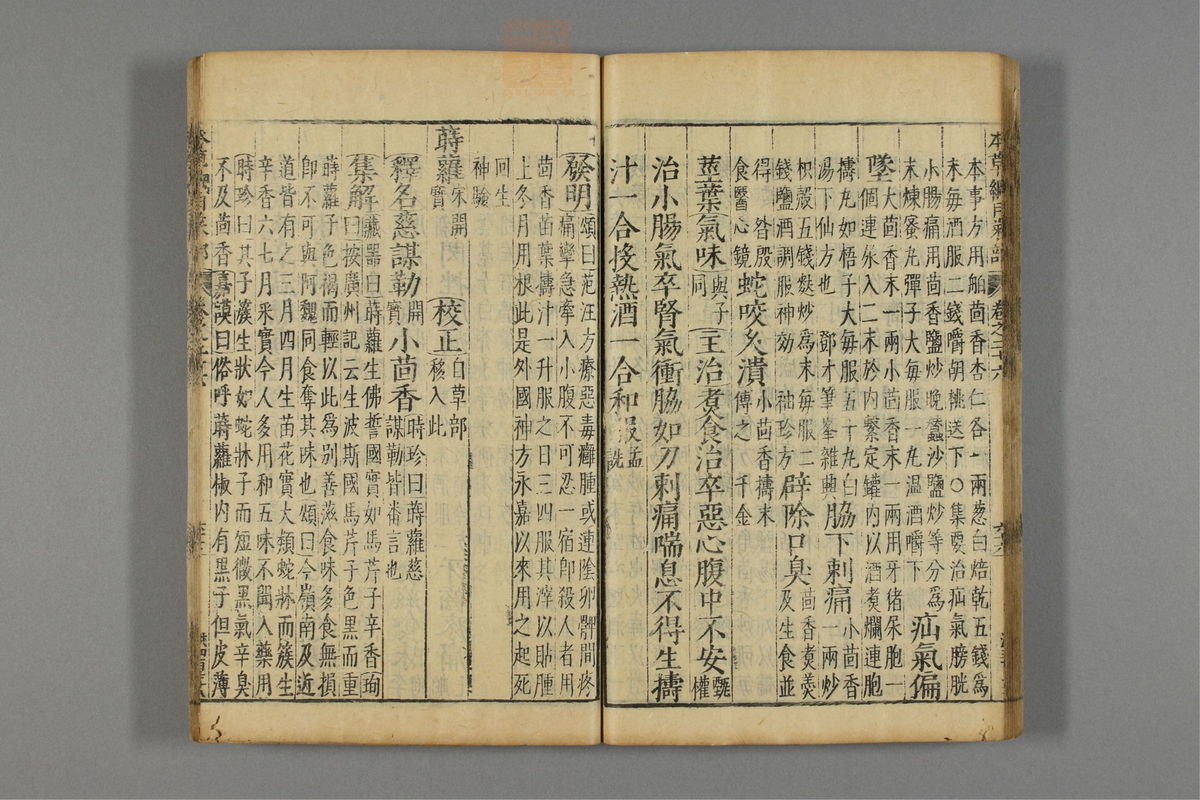 本草綱目菜部 卷之二十六
本事方用舶茴香杏仁各一兩葱白焙乾五錢為
末每酒服二錢嚼胡桃送下○集要治疝氣膀胱
小腸痛用茴香鹽炒晚蠶沙鹽炒等分為
末煉蜜丸彈子大每服一丸溫酒嚼下
疝氣偏
墜
大茴香末一兩小茴香末一兩用牙猪尿胞一
個連尿入二末於內繫定罐內以酒煑爛連胞
擣丸如梧子大每服五十丸白
湯下仙方也 鄧才筆峯雜興
脇下刺痛
小茴香
一兩炒
枳殼五錢麩炒為末每服二
錢鹽酒調服神効 袖珍方
辟除口臭
茴香煑羮
及生食並
得 昝殷
食醫心鏡
蛇咬久潰
小茴香擣末
傅之 千金
莖葉氣味
與子
同
主治煑食治卒惡心腹中不安
甄
權
治小腸氣卒腎氣衝脇如刀刺痛喘息不得生擣
汁一合投熱酒一合和服
孟
詵
發明
頌曰范汪方療惡毒癰腫或連陰卵髀間疼
痛攣急牽入小腹不可忍一宿即殺人者用
茴香苗葉擣汁一升服之日三四服其滓以貼腫
上冬月用根此是外國神方永嘉以來用之起死
回生
神驗
蒔蘿
宋開
寶
校正
自草部
移入此
釋名慈謀勒
開
寶
小茴香
時珍曰蒔蘿慈
謀勒皆番言也
集解
藏器曰蒔蘿生佛誓國實如馬芹子辛香珣
曰按廣州記云生波斯國馬芹子色黑而重
蒔蘿子色褐而輕以此為別善滋食味多食無損
即不可與阿魏同食奪其味也頌曰今嶺南及近
道皆有之三月四月生苗花實大類蛇牀而簇生
辛香六七月采實今人多用和五味不聞入藥用
時珍曰其子簇生狀如蛇牀子而短微黑氣辛臭
不及茴香嘉謨曰俗呼蒔蘿椒內有黑子但皮薄